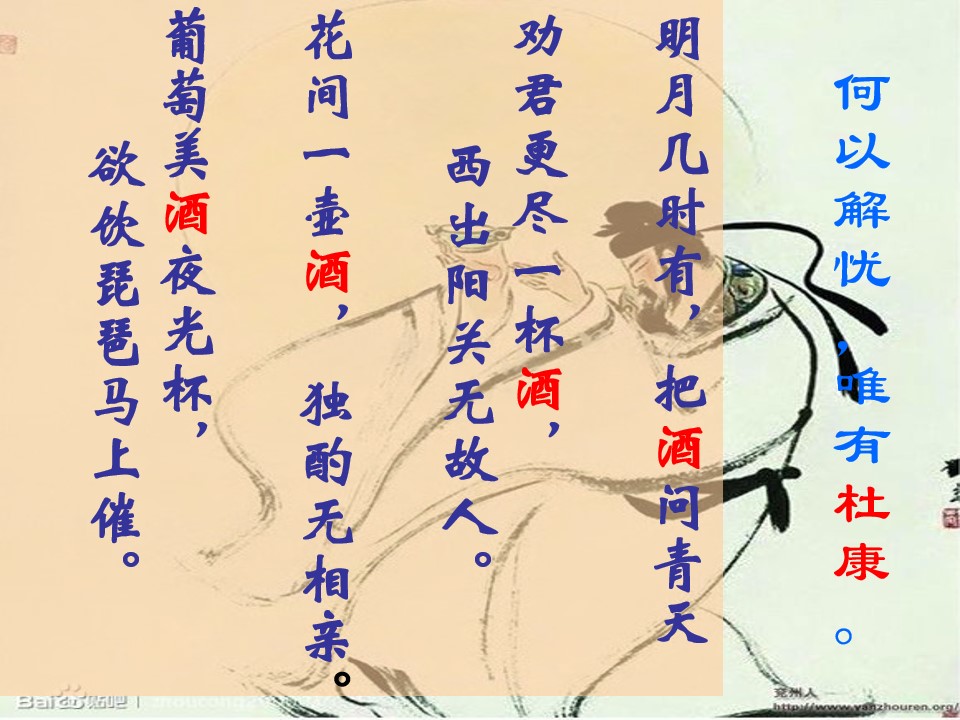 何以解忧，唯有杜康。
明月几时有，把酒问青天
劝君更尽一杯酒，
西出阳关无故人。
花间一壶酒，独酌无相亲。
葡萄美酒夜光杯，
欲饮琵琶马上催。
Bai du 贴吧
兖州人
http://www.yanzhouren.org/